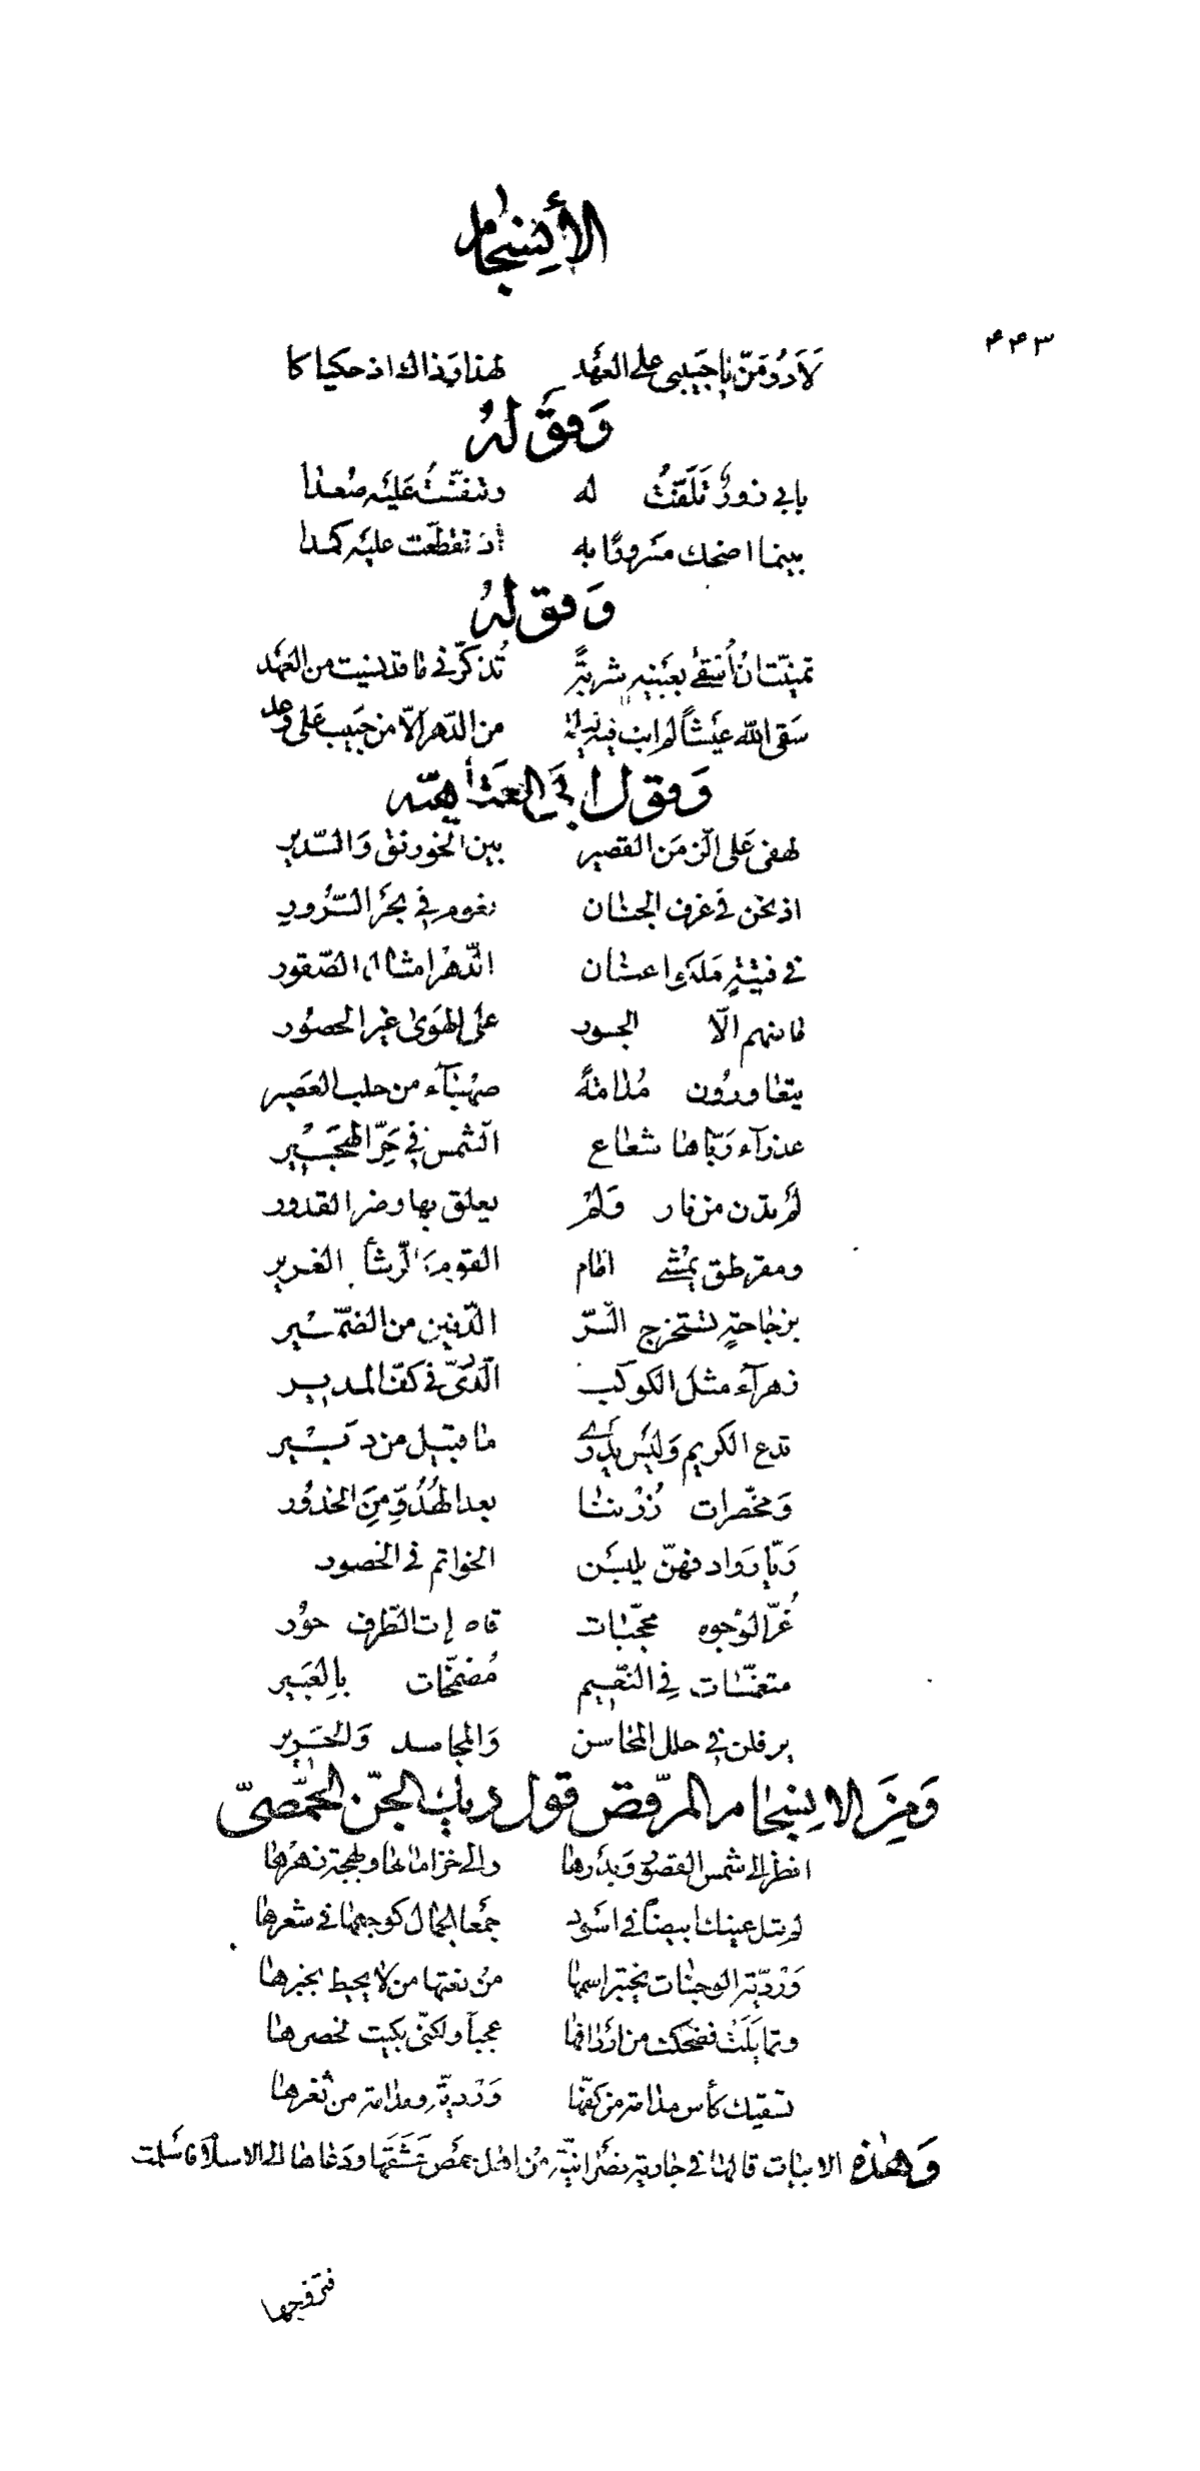 الأنسجام
٤٤٣
لَأَدُومَنّ يا حَبيبى على العَهد لهذا وَذاك اذ حكياكا
وَقَولهُ
بابى زورٌ تَلَفّتُّ له وتنفّسْتُ عَليْه صُعدا
بينما اضحك مسْرورًا به اذ تقطّعت عليْه كمدا
وَقولهُ
تمنيّت ان اُسْقى بعَينيه شربةً تُذكّرنى ما قد نسيت من العَهد
سَقى الله عيْشاً لم ابت فيه ليلة من الدّهر الّا من حَبيب عَلى وعد
وَقول ابى العَتاهيّه
لهفى عَلى الزّمَن القصير بين الخورنق وَالسّدير
اذ نحْن فى غرف الجنان نعوم فى بحْر السّرُور
فى فتيَةٍ ملكوا عنان الدّهْر امثال الصّقور
ما منهم الّا الجسور على الهَوى غير الحصُور
يتعاورُون مُدامةً صهْبآء من حلب العَصير
عذرآء ربّاها شعاع الشّمس فى حَرّ الهجَيْر
لمْ تدن من نار وَلمْ يعلق بها وضر القدور
ومقرطق يمْشى امام القوم كالرّشأ الغرير
بزجاجةٍ تستخرج السّرّ الدّفين من الضّميْر
زهرآء مثل الكوكب الدّرىّ فى كفّ المدير
تدع الكريم وَليْس يدْرى ما قبيل من دبيْر
وَمخصّرات زُرْننا بعد الهُدُوّ مِنَ الخدُور
رَيّا رَوادفهنّ يلبسْن الخواتم فى الخصور
غُرّ الوُجوه محجّبات قاصرات الطّرف حوُر
متنعّمات فى النّعيم مُضمّخات بالعَبير
يرفلن فى حلل المحاسن وَالمجاسد وَالحَرير
وَمِنَ الانسِجام المرّقص قول ديك الجنّ الحمْصىّ
انظر الى شمس القصور وَبدْرها والى خزاماها وبهجة زهْرها
لم تبل عينك ابيضاً فى اسْود جمَع الجمال كوجهها فى شعرها
وَرْديّة الوجنات يختبر اسمها منْ نعتها من لا يحيط بخبرها
وتمايَلَتْ فضحكت من اردافها عجباً ولكنّى بكيت لخصرها
تسقيك كأس مدامة من كفّها وَرْديّة ومدامة من ثغرها
وَهٰذه الابيات قالها فى جارية نصْرانيّة منْ اهل حمْص عَشقَها ودَعاها الى الاسلام فاسْلمت
فتزوّجها